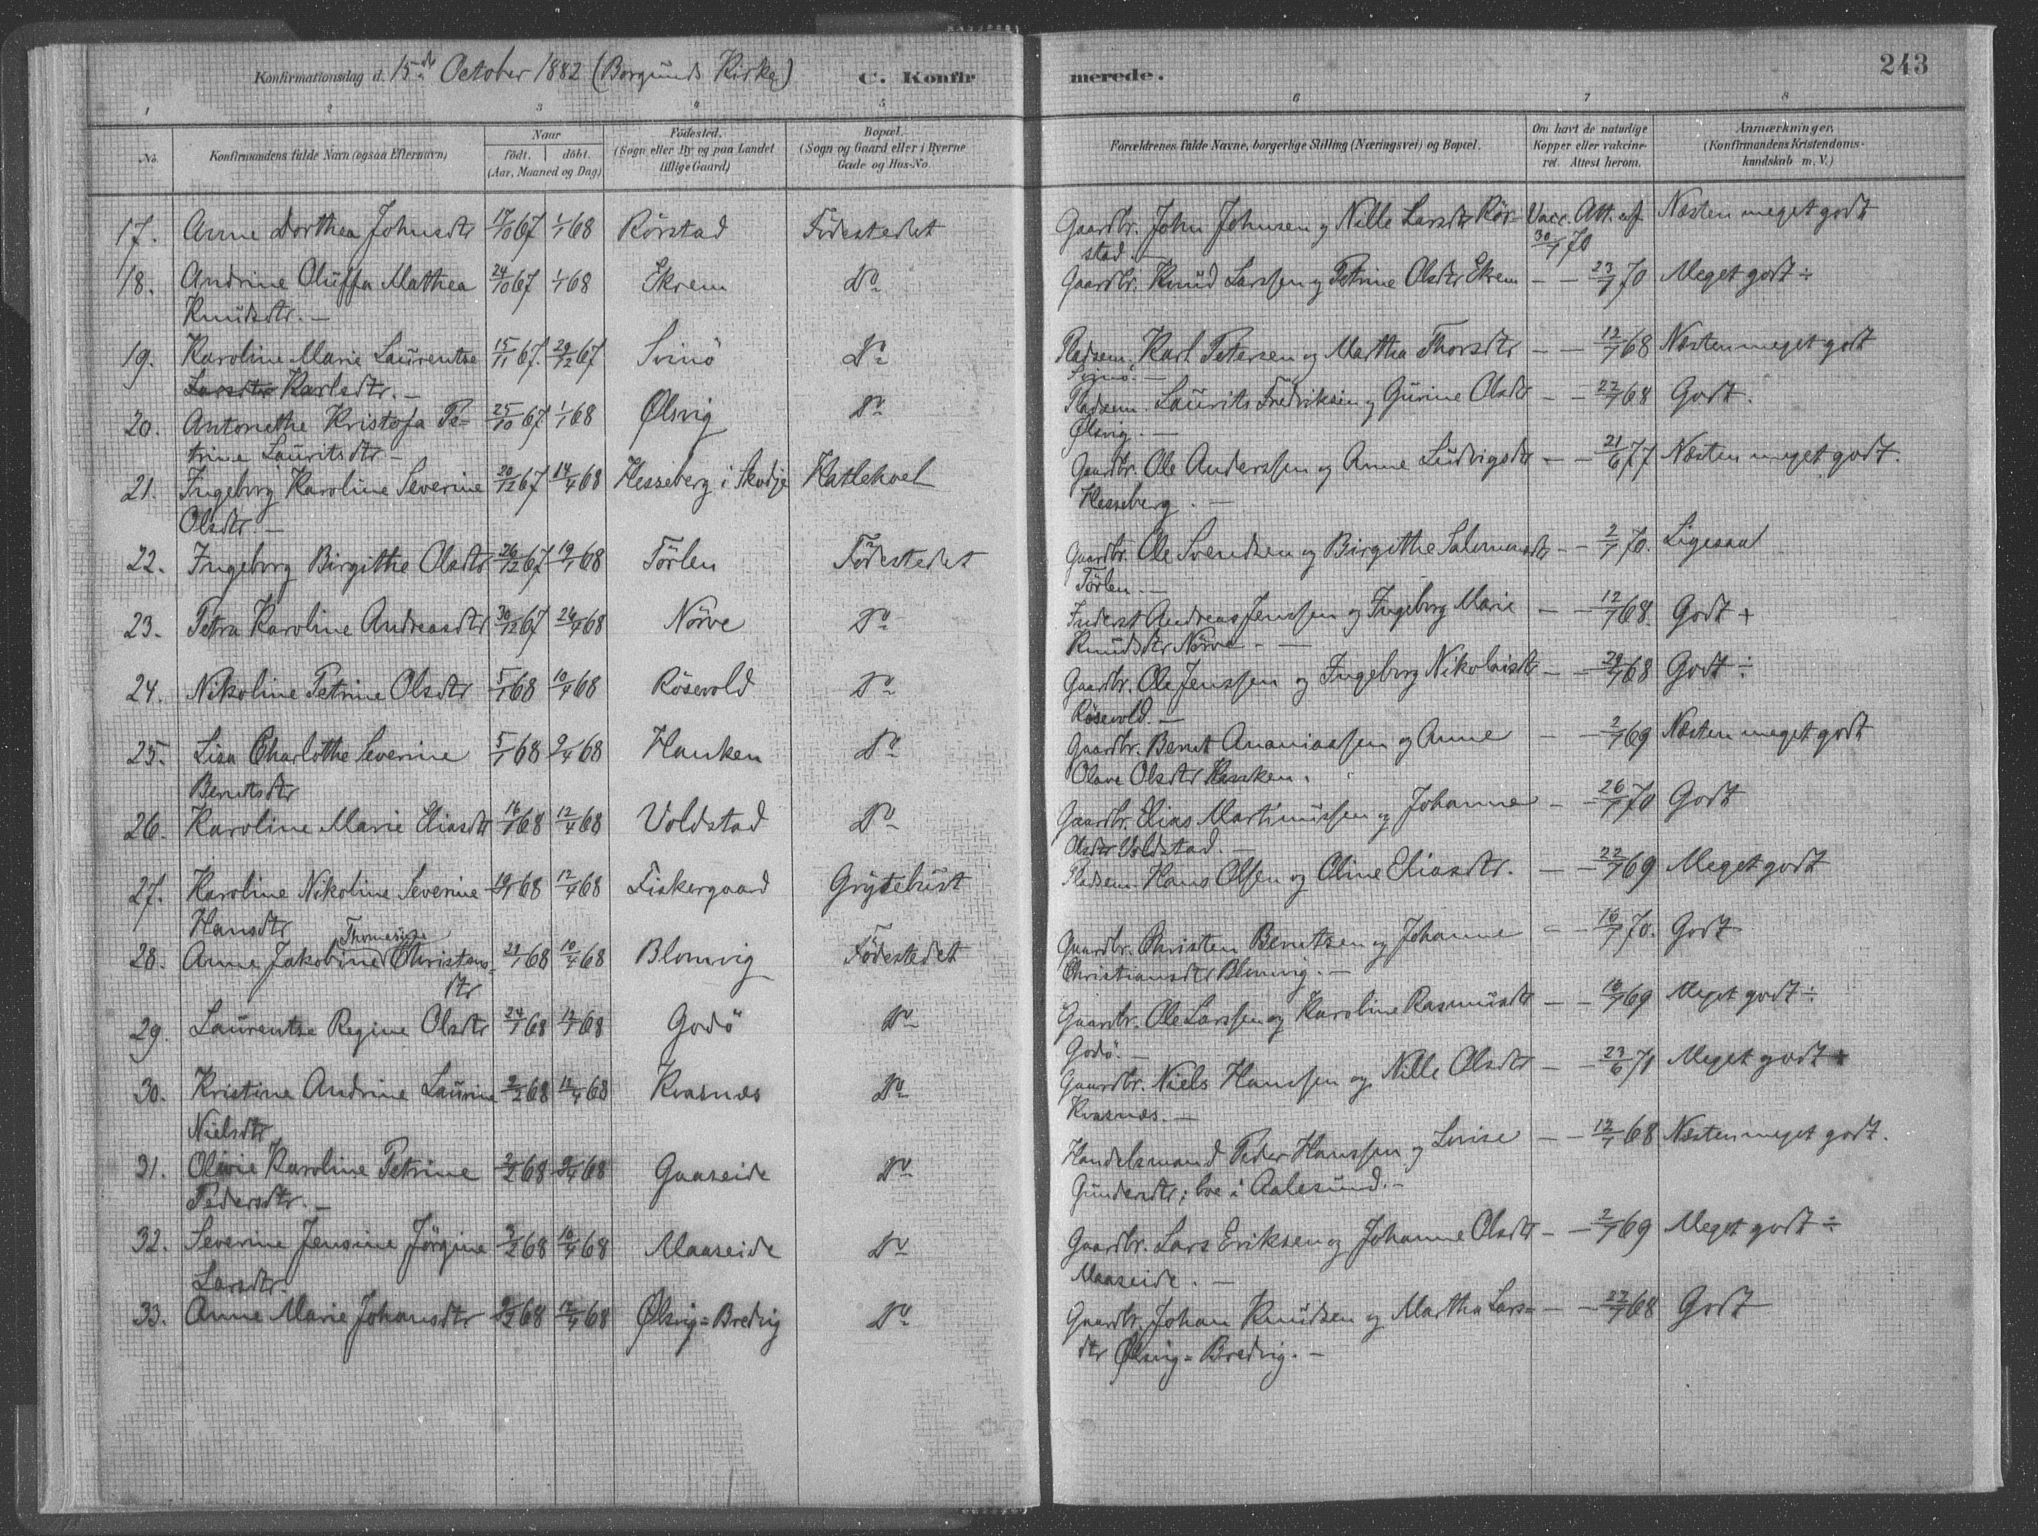 Konfirmationsdag d. 15de October 1882 (Borgunds Kirke) C. Konfir merede. 243
1 2 3 4 5 6 7 8
No. Konfirmandens fulde Navn (ogsaa Efternavn) Naar født. døbt. (Aar, Maaned og Dag) Fødested. (Sogn eller By og paa Landet tillige Gaard) Bopæl. (Sogn og Gaard eller i Byerne Gade og Hus-No. Forældrenes fulde Navne, borgerlige Stilling (Næringsvei) og Bopæl. Om havt de naturlige Kopper eller vakcineret. Attest herom. Anmærkninger. (Konfirmandens Kristendomskundskab m. V.)
17. Anne Dorthea Johnsdtr 17/10 67 1/1 68 Rörstad Födestedet Gaardbr. John Johnsen og Nille Larsdtr Rör- Vacc. Att. af Næsten meget godt
stad. — 30/7 70
18. Andrine Oluffa Mathea 24/10 67 1/1 68 Ekrem Do Gaardbr. Knud Larssen og Petrine Olsdtr Ekrem — — 23/7 70 Meget godt ÷
Knudsdtr. —
19. Karoline Marie Laurentse 15/11 67. 29/12 67 Svinö Do Pladsem. Karl Petersen og Martha Thorsdtr — — 12/7 68 Næsten meget godt
Larsdtr Karlsdtr. — Svinö. —
20. Antonethe Kristofa Pe- 25/10 67 1/1 68 Ølsvig Do Pladsem. Laurits Fredriksen og Gurine Olsdtr — — 22/7 68 Godt.
trine Lauritsdtr — Ølsvig. —
21. Ingeborg Karoline Severine 20/12 67 14/4 68 Hesseberg i Skodje Hatlehoel Gaardbr. Ole Anderssen og Anne Ludvigsdtr — — 21/6 77 Næsten meget godt.
Olsdtr. — Hesseberg. —
22. Ingeborg Birgithe Olsdtr 26/12 67 19/1 68 Törlen Födestedet Gaardbr. Ole Svendsen og Birgithe Salomonsdtr — — 2/7 70. Ligesaa
Törlen. —
23. Petra Karoline Andreasdtr 30/12 67 26/4 68 Nörve Do Inderst Andreas Jenssen og Ingeborg Marie — — 12/7 68. Godt +
Knudsdtr Nörve. —
24. Nikoline Petrine Olsdtr 5/1 68 10/4 68 Rösevold Do Gaardbr. Ole Jenssen og Ingeborg Nikolaisdtr — — 29/7 68 Godt ÷
Rösevold. —
25. Lisa Charlotthe Severine 5/1 68 9/4 68 Hanken Do Gaardbr. Bernt Ananiassen og Anne — — 2/7 69 Næsten meget godt
Berntsdtr Olave Olsdtr Hanken.
26. Karoline Marie Eliasdtr 16/1 68 12/4 68 Voldstad Do Gaardbr. Elias Martinussen og Johanne — — 26/7 70 Godt
Olsdtr Voldstad. —
27. Karoline Nikoline Severine 19/1 68 12/4 68 Fiskergaard Grytebust Pladsem. Hans Olsen og Oline Eliasdtr. — — 22/7 69 Meget godt
Hansdtr
28. Anne Jakobine Thomasine Christens- 23/1 68 10/4 68 Blomvig Födestedet Gaardbr. Christen Berntsen og Johanne — 16/7 70. Godt
dtr Christiansdtr Blomvig. —
29. Laurentse Regine Olsdtr 24/1 68 12/4 68 Godö Do Gaardbr. Ole Larssen og Karoline Rasmusdtr — — 16/7 69 Meget godt ÷
Godö. —
30. Kristine Andrine Laurine 2/2 68 12/4 68 Kvasnæs Do Gaardbr. Niels Hanssen og Nille Olsdtr — — 23/6 71 Meget godt +
Nielsdtr Kvasnæs. —
31. Olivie Karoline Petrine 2/2 68 9/4 68 Gaaseide Do Handelsmand Peder Hanssen og Lovise — — 12/7 68 Næsten meget godt.
Pedersdtr. — Gundersdtr; boe i Aalesund. —
32. Severine Jensine Jörgine 3/2 68 10/4 68 Maaseide Do Gaardbr. Lars Eriksen og Johanne Olsdtr — — 2/7 69 Meget godt ÷
Larsdtr. Maaseide. —
33. Anne Marie Johansdtr 9/2 68 12/4 68 Ølsvig=Bredvig Do Gaardbr. Johan Knudsen og Martha Lars= — — 22/7 68 Godt
dtr Ølsvig=Bredvig. —